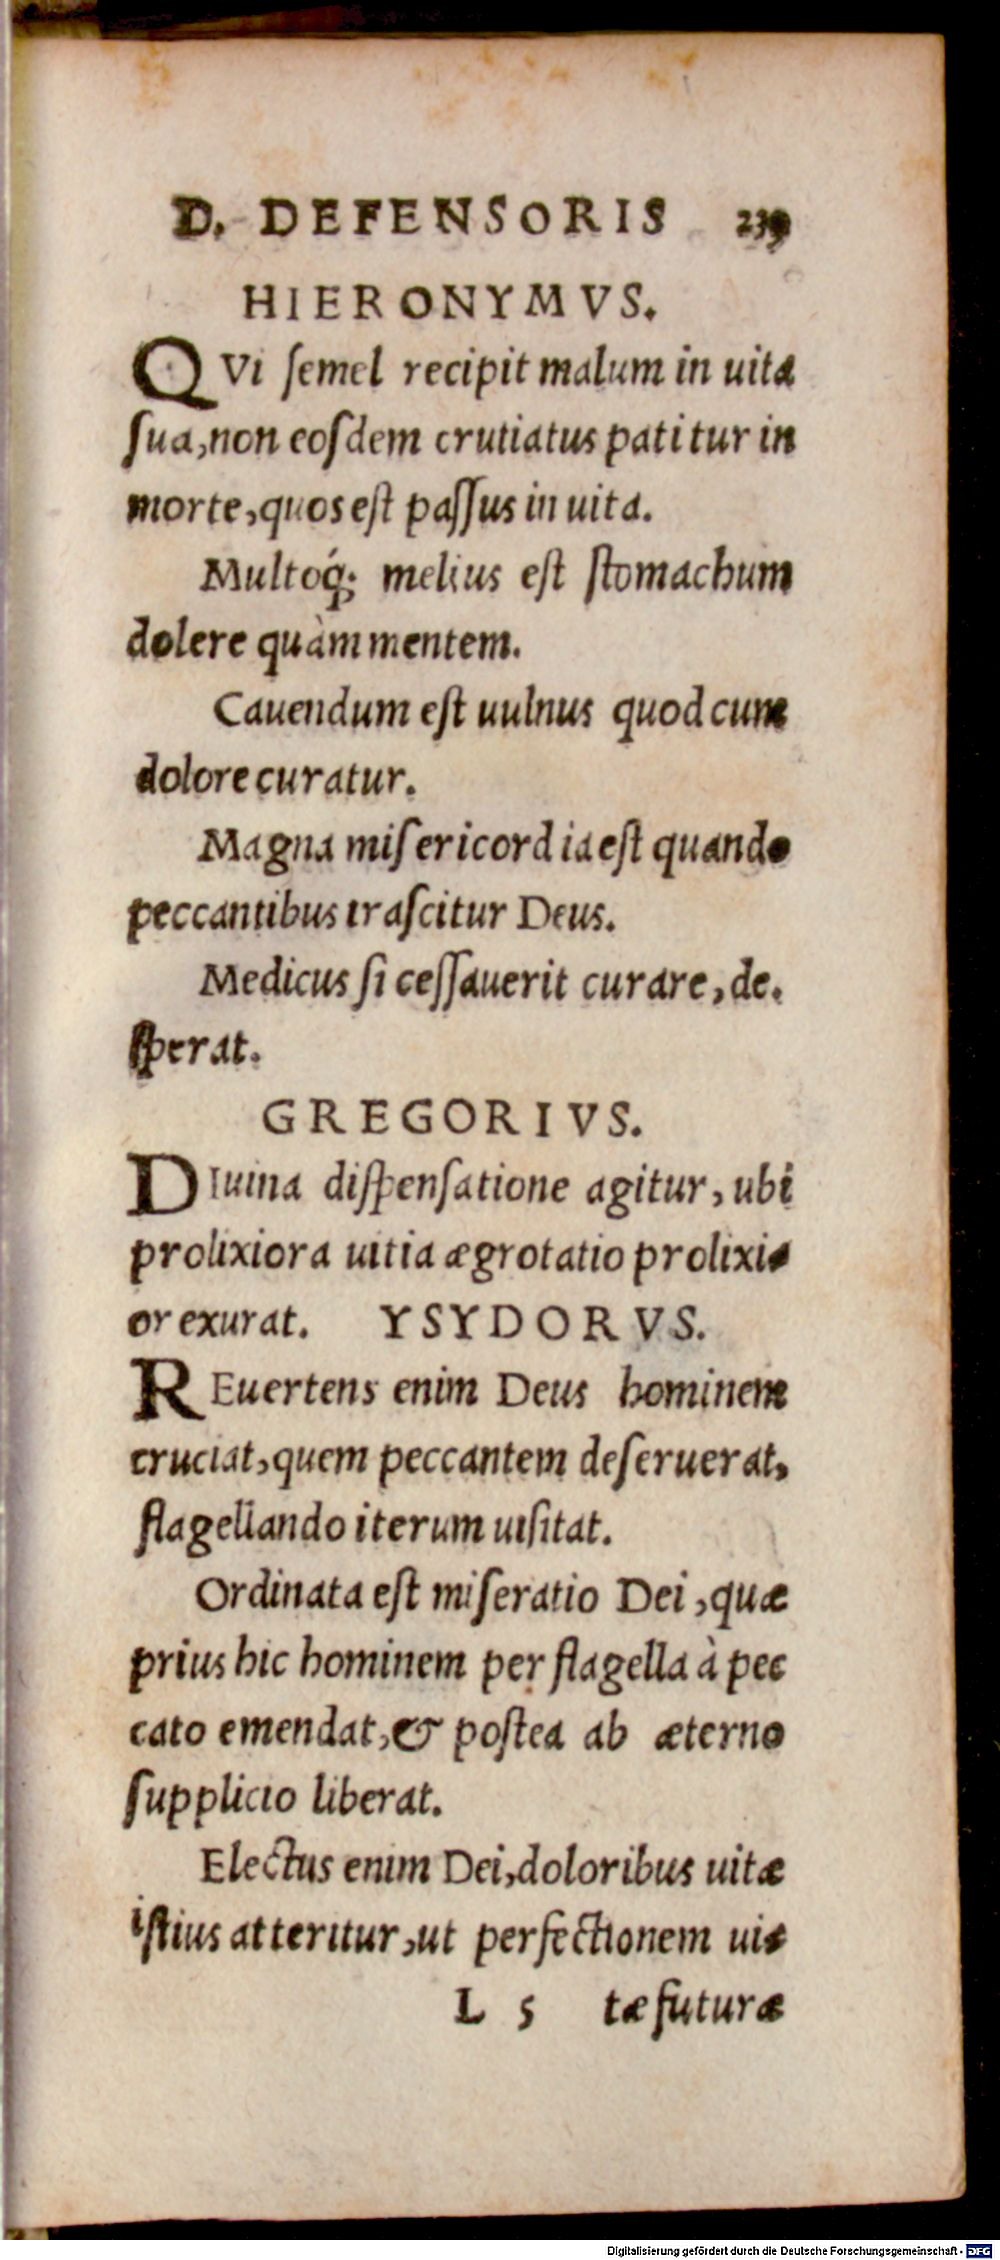 D. DEFENSORIS 239
HIERONYMVS.
QVi ſemel recipit malum in uita
ſua, non eoſdem crutiatus patitur in
morte, quos eſt paſſus in uita.
Multoq́; melius eſt ſtomachum
dolere quàm mentem.
Cauendum eſt uulnus quod cum
dolore curatur.
Magna miſericordia eſt quando
peccantibus iraſcitur Deus.
Medicus ſi ceſſauerit curare, de.
ſperat.
GREGORIVS.
DIuina diſpenſatione agitur, ubi
prolixiora uitia ægrotatio prolixi-
or exurat. YSYDORVS.
REuertens enim Deus hominem
cruciat, quem peccantem deſeruerat,
flagellando iterum uiſitat.
Ordinata eſt miſeratio Dei, quæ
prius hic hominem per flagella à pec
cato emendat, & poſtea ab æterno
ſupplicio liberat.
Electus enim Dei, doloribus uitæ
iſtius atteritur, ut perfectionem ui-
L 5 tæ futuræ
Digitalisierung gefördert durch die Deutsche Forschungsgemeinschaft - DFG